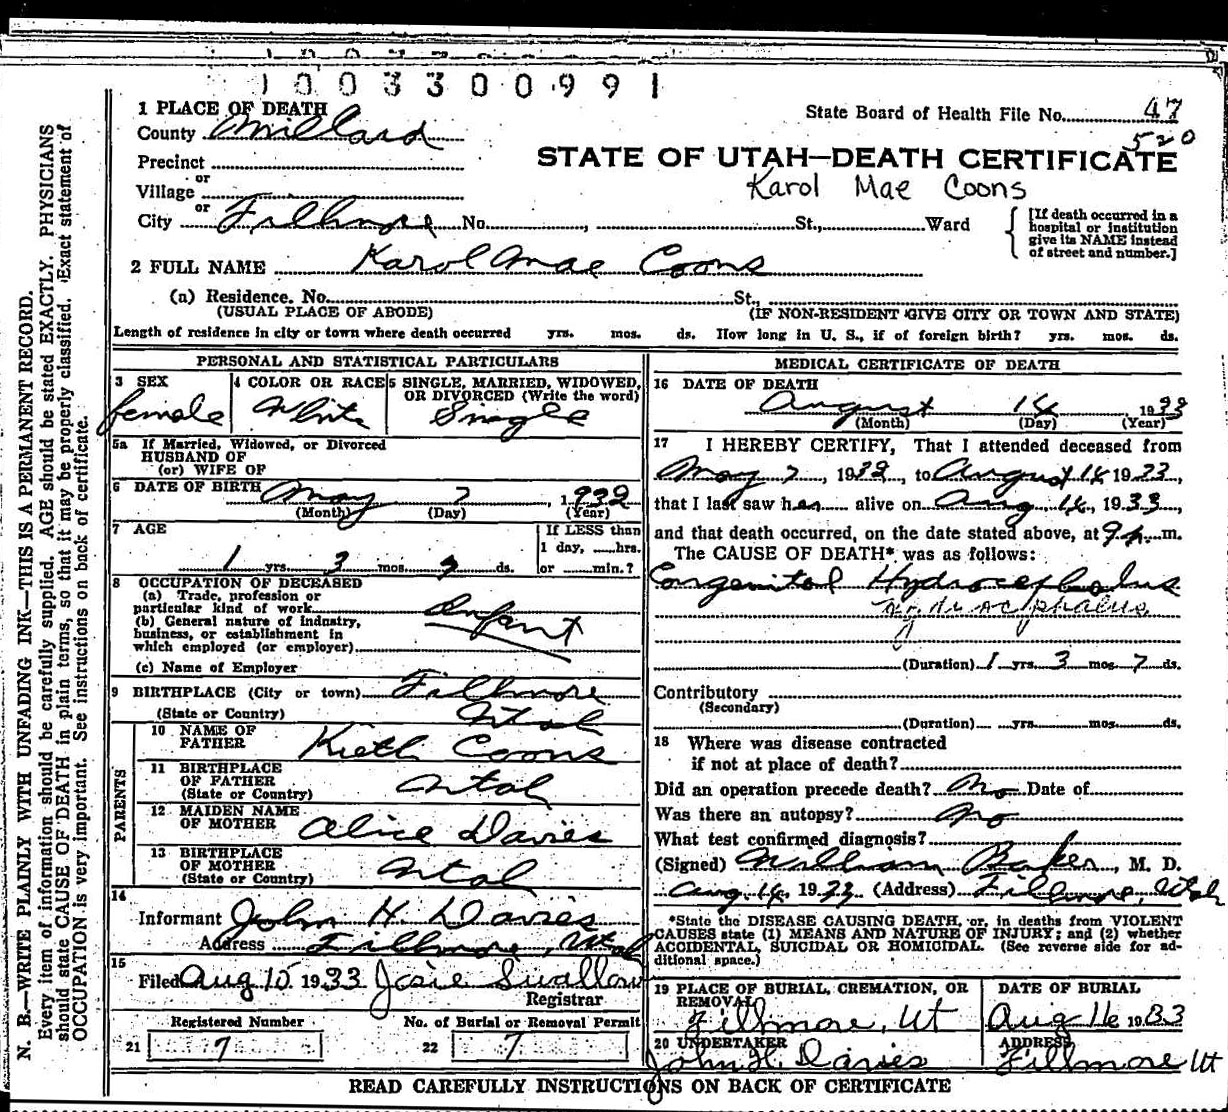 1 0 0 3 3 0 0 9 9 1
1 PLACE OF DEATH
County Millard
State Board of Health File No. 47
520
Precinct
or
Village
STATE OF UTAH—DEATH CERTIFICATE
Karol Mae Coons
or
City Fillmore No. , St., Ward
[If death occurred in a hospital or institution give its NAME instead of street and number.]
2 FULL NAME Karol Mae Coons
(a) Residence. No. St.,
(USUAL PLACE OF ABODE) (IF NON-RESIDENT GIVE CITY OR TOWN AND STATE)
Length of residence in city or town where death occurred yrs. mos. ds. How long in U. S., if of foreign birth? yrs. mos. ds.
PERSONAL AND STATISTICAL PARTICULARS
3 SEX
female
4 COLOR OR RACE
White
5 SINGLE, MARRIED, WIDOWED, OR DIVORCED (Write the word)
Single
5a If Married, Widowed, or Divorced
HUSBAND OF
(or) WIFE OF
6 DATE OF BIRTH May 7, 1932
(Month) (Day) (Year)
7 AGE
1 yrs. 3 mos. 7 ds.
If LESS than
1 day, hrs.
or min.?
8 OCCUPATION OF DECEASED
(a) Trade, profession or
particular kind of work Infant
(b) General nature of industry,
business, or establishment in
which employed (or employer)
(c) Name of Employer
9 BIRTHPLACE (City or town) Fillmore
(State or Country) Utah
PARENTS
10 NAME OF FATHER Kieth Coons
11 BIRTHPLACE OF FATHER (State or Country) Utah
12 MAIDEN NAME OF MOTHER Alice Davies
13 BIRTHPLACE OF MOTHER (State or Country) Utah
14
Informant John H. Davies
Address Fillmore, Utah
15
Filed Aug 15 1933 Josie Swallow
Registrar
Registered Number
21 7
No. of Burial or Removal Permit
22 7
MEDICAL CERTIFICATE OF DEATH
16 DATE OF DEATH
August 14 1933
(Month) (Day) (Year)
17 I HEREBY CERTIFY, That I attended deceased from
May 7, 1932, to August 14 1933,
that I last saw her alive on Aug 14, 1933,
and that death occurred, on the date stated above, at 9 p. m.
The CAUSE OF DEATH* was as follows:
Congenital Hydrocephalus
hydrocephalus
(Duration) 1 yrs. 3 mos. 7 ds.
Contributory
(Secondary)
(Duration) yrs. mos. ds.
18 Where was disease contracted
if not at place of death?
Did an operation precede death? No Date of
Was there an autopsy? No
What test confirmed diagnosis?
(Signed) William Baker, M. D.
Aug 14, 1933 (Address) Fillmore, Utah
*State the DISEASE CAUSING DEATH, or, in deaths from VIOLENT
CAUSES state (1) MEANS AND NATURE OF INJURY; and (2) whether
ACCIDENTAL, SUICIDAL OR HOMICIDAL. (See reverse side for ad-
ditional space.)
19 PLACE OF BURIAL, CREMATION, OR REMOVAL
Fillmore, Ut
DATE OF BURIAL
Aug 16 1933
20 UNDERTAKER
John H. Davies
ADDRESS
Fillmore Ut
READ CAREFULLY INSTRUCTIONS ON BACK OF CERTIFICATE
N. B.—WRITE PLAINLY WITH UNFADING INK—THIS IS A PERMANENT RECORD.
Every item of information should be carefully supplied. AGE should be stated EXACTLY. PHYSICIANS
should state CAUSE OF DEATH in plain terms, so that it may be properly classified. Exact statement of
OCCUPATION is very important. See instructions on back of certificate.